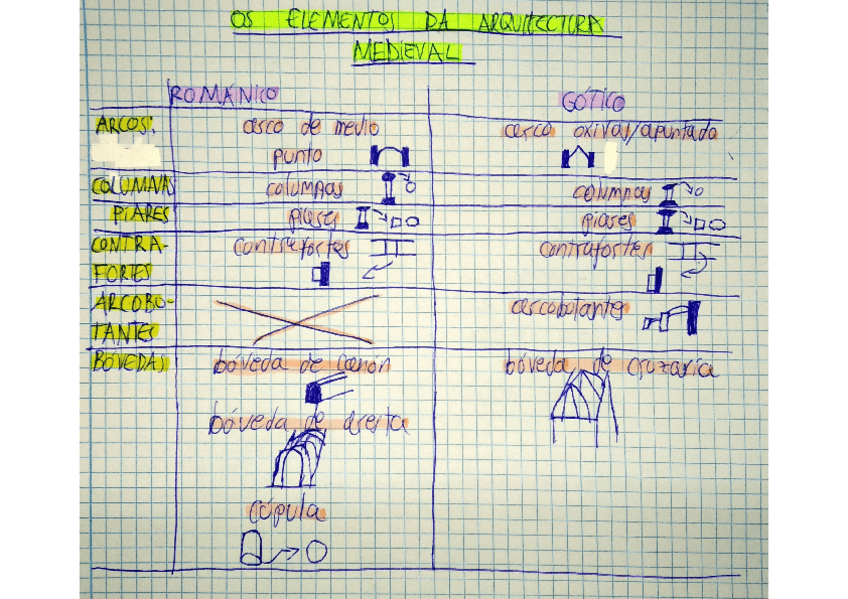 OS ELEMENTOS DA ARQUITECTURA
MEDIEVAL
ROMÁNICO
GÓTICO
ARCOS:
arco de medio
punto
arco oxival/apuntado
COLUMNAS
columnas
columnas
PIARES
piares
piares
CONTRA-
FORTES
contrafortes
contrafortes
ARCOBO-
TANTES
arcobotantes
BÓVEDAS
bóveda de canón
bóveda de aresta
cúpula
bóveda de cruzaría